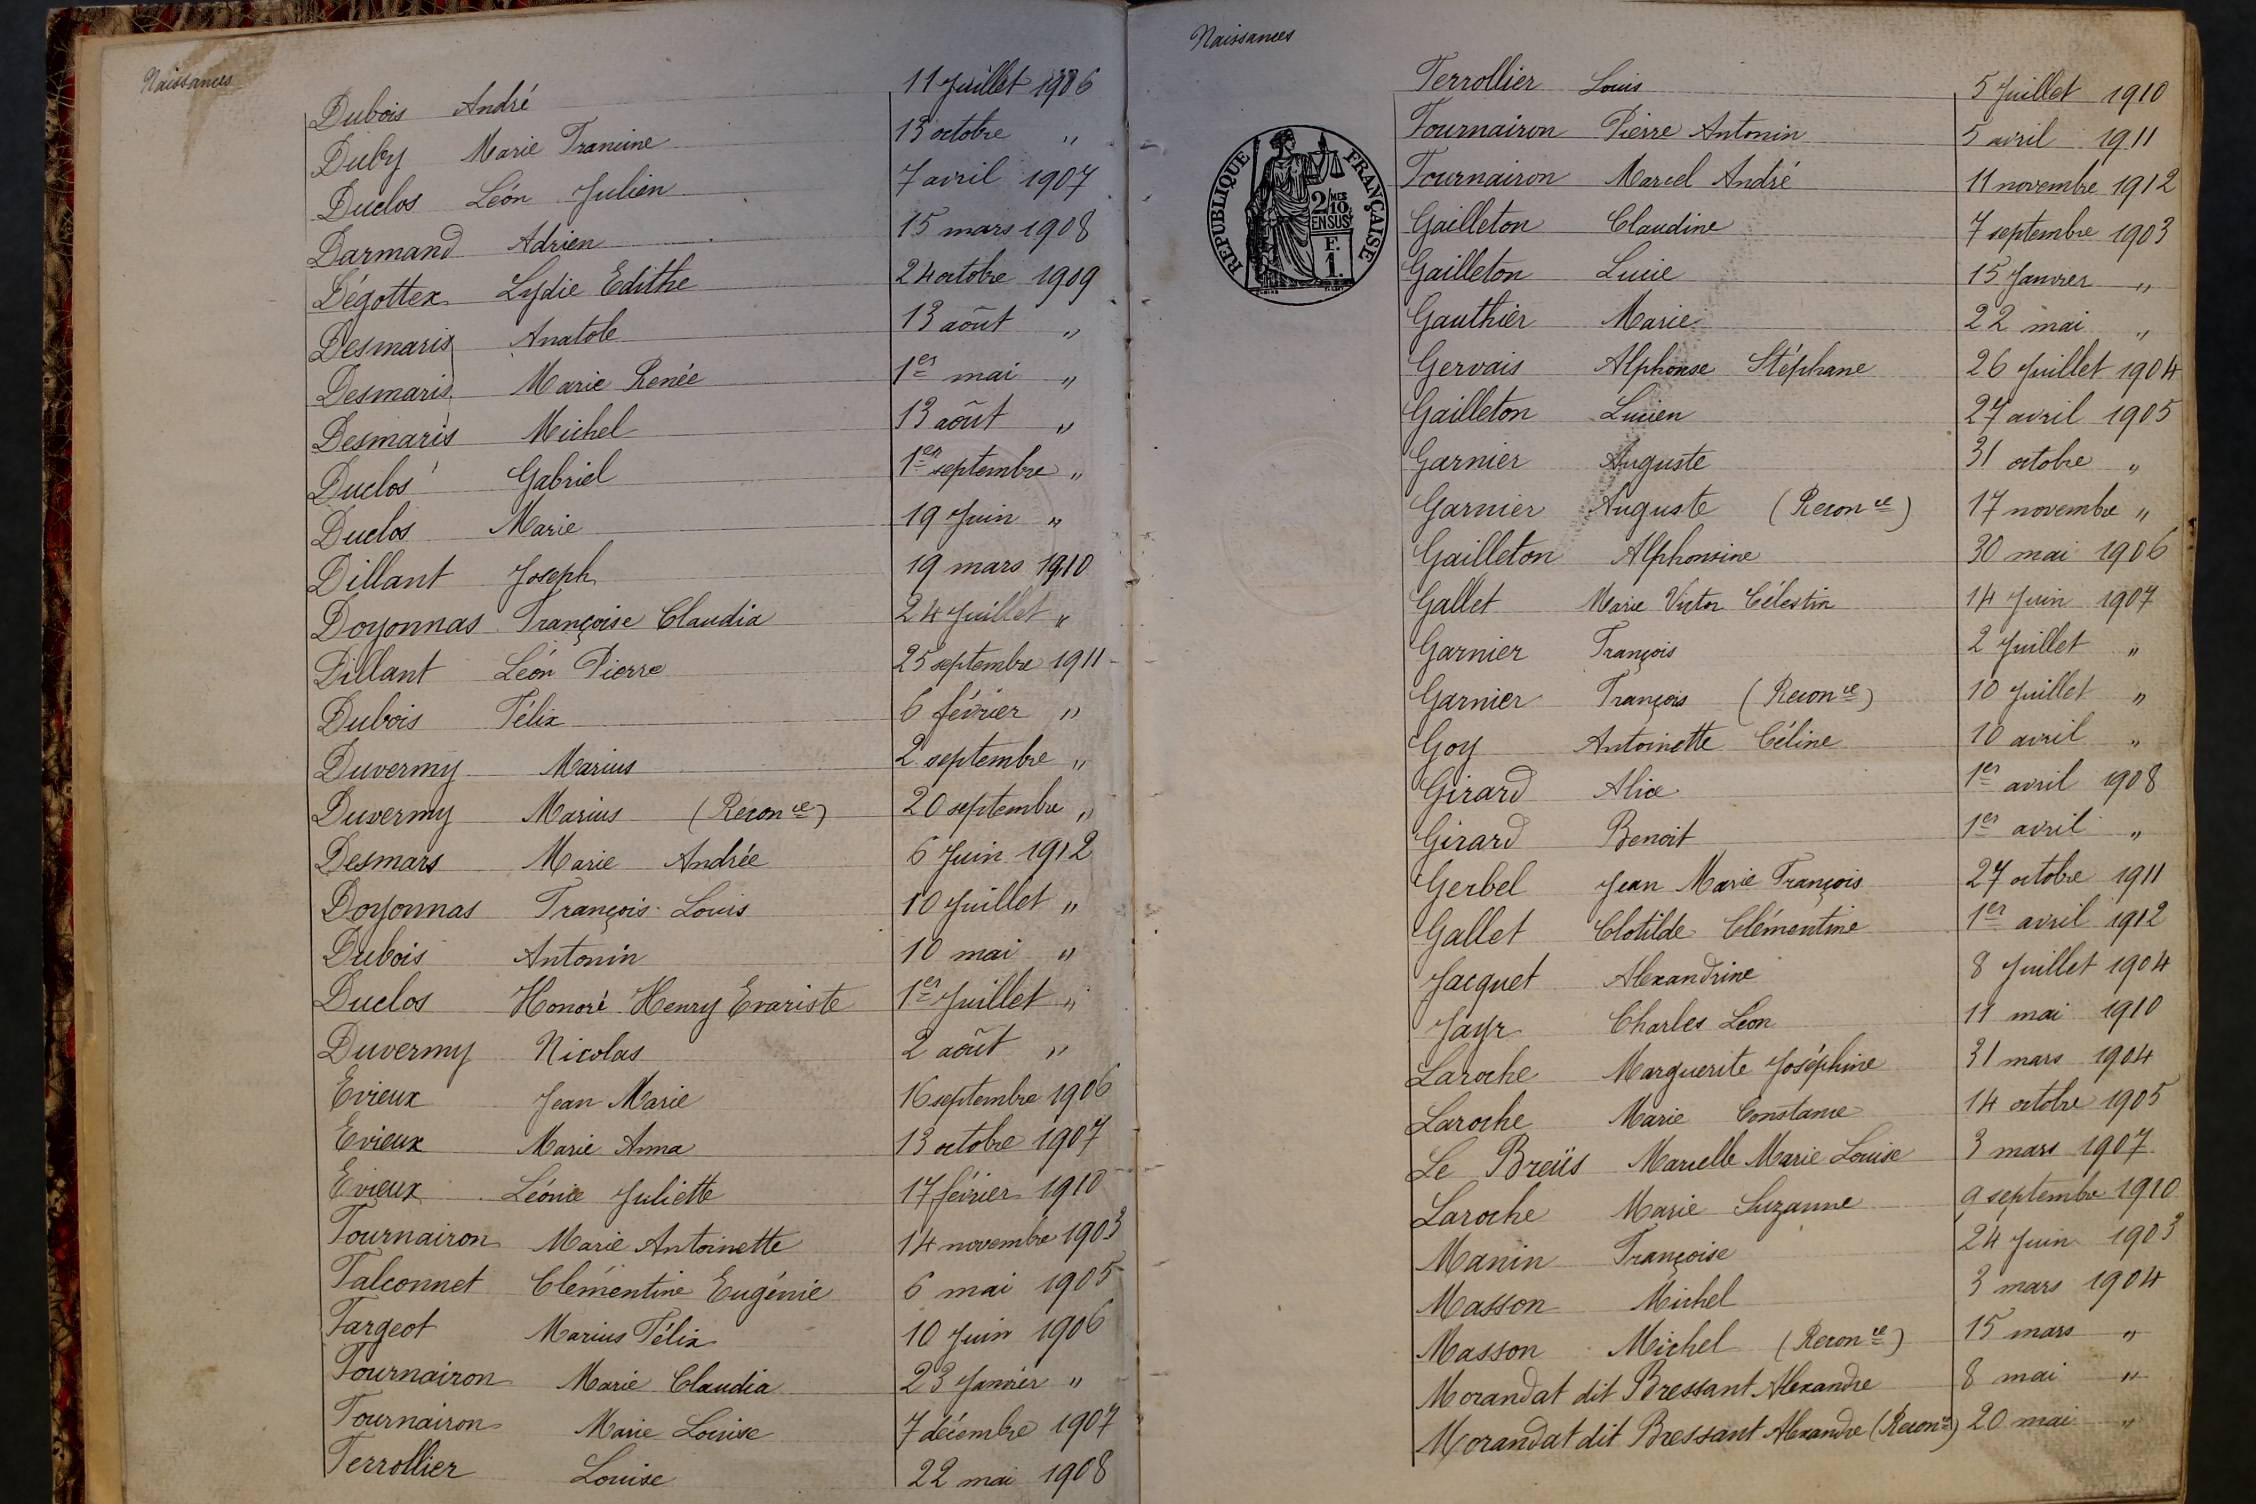 Naissances
Dubois André 11 Juillet 1906
Duby Marie Francine 13 octobre "
Duclos Léon Julien 7 avril 1907
Darmand Adrien 15 mars 1908
Dégottex Lydie Edithe 24 octobre 1909
Desmaris Anatole 13 août "
Desmaris Marie Renée 1er mai "
Desmaris Michel 13 août "
Duclos Gabriel 1er septembre "
Duclos Marie 19 Juin "
Dillant Joseph 19 mars 1910
Doyonnas Françoise Claudia 24 Juillet "
Dillant Léon Pierre 25 septembre 1911
Dubois Félix 6 février "
Duvermy Marius 2 septembre "
Duvermy Marius (Reconce) 20 septembre "
Desmars Marie Andrée 6 Juin 1912
Doyonnas François Louis 10 Juillet "
Dubois Antonin 10 mai "
Duclos Honoré Henry Evariste 1er Juillet "
Duvermy Nicolas 2 août "
Evieux Jean Marie 16 septembre 1906
Evieux Marie Anna 13 octobre 1907
Evieux Léonie Juliette 17 février 1910
Fournairon Marie Antoinette 14 novembre 1903
Falconnet Clémentine Eugénie 6 mai 1905
Fargeot Marius Félix 10 Juin 1906
Fournairon Marie Claudia 23 Janvier "
Fournairon Marie Louise 7 décembre 1907
Ferrollier Louise 22 mai 1908
Naissances
REPUBLIQUE FRANÇAISE
2/MES 10.
EN SUS
F.
1.
Ferrollier Louis 5 Juillet 1910
Fournairon Pierre Antonin 5 avril 1911
Fournairon Marcel André 11 novembre 1912
Gailleton Claudine 7 septembre 1903
Gailleton Lucie 15 Janvier "
Gauthier Marie 22 mai "
Gervais Alphonse Stéphane 26 Juillet 1904
Gailleton Lucien 27 avril 1905
Garnier Auguste 31 octobre "
Garnier Auguste (Reconce) 17 novembre "
Gailleton Alphonsine 30 mai 1906
Gallet Marie Victor Célestin 14 Juin 1907
Garnier François 2 Juillet "
Garnier François (Reconce) 10 Juillet "
Goy Antoinette Céline 10 avril "
Girard Alice 1er avril 1908
Girard Benoit 1er avril "
Gerbel Jean Marie François 27 octobre 1911
Gallet Clotilde Clémentine 1er avril 1912
Jacquet Alexandrine 8 Juillet 1904
Jayr Charles Léon 11 mai 1910
Laroche Marguerite Joséphine 31 mars 1904
Laroche Marie Constance 14 octobre 1905
Le Breüs Marcelle Marie Louise 3 mars 1907
Laroche Marie Suzanne 9 septembre 1910
Manin Françoise 24 Juin 1903
Masson Michel 3 mars 1904
Masson Michel (Reconce) 15 mars "
Morandat dit Bressant Alexandre 8 mai "
Morandat dit Bressant Alexandre (Reconce) 20 mai "